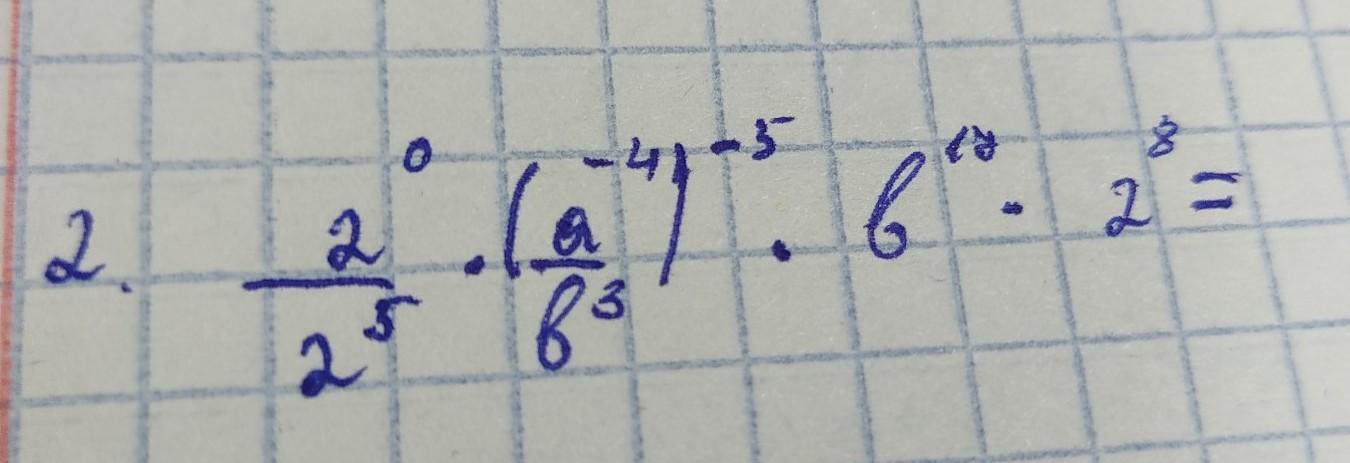 2. 2⁰/2⁵ · (a⁻⁴/b³)⁻⁵ · b¹⁷ · 2⁸ =